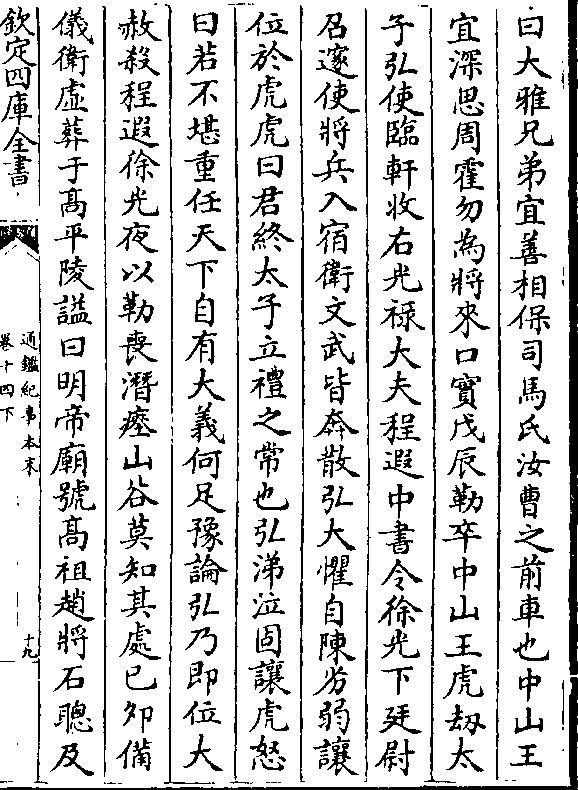 曰大雅兄弟宜善相保司馬氏汝曹之前車也中山王
宜深思周霍勿為將來口實戊辰勒卒中山王虎劫太
子弘使臨軒收右光禄大夫程遐中書令徐光下廷尉
召邃使將兵入宿衛文武皆奔散弘大懼自陳劣弱讓
位於虎虎曰君終太子立禮之常也弘涕泣固讓虎怒
曰若不堪重任天下自有大義何足豫論弘乃即位大
赦殺程遐徐光夜以勒喪潛瘞山谷莫知其處已夘備
儀衛虚葬于髙平陵諡曰明帝廟號髙祖趙將石聰及
欽定四庫全書
通鑑紀事本末
卷十四下
十九